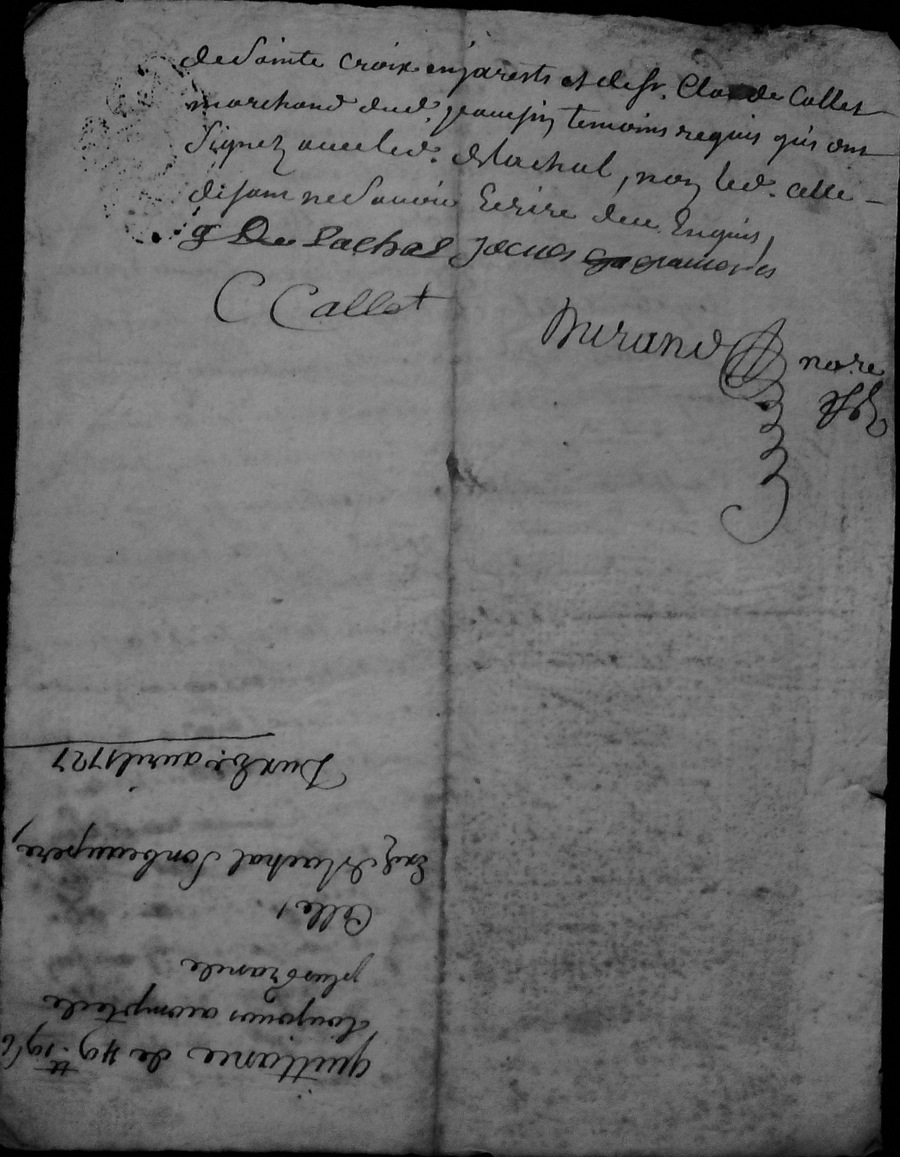 de Sainte croix en jarests et de sr. Claude Callet
marchand dud. temoins requis qui ont
Signez avec led. Delachal, non led. Celle
disant ne Savoir Ecrire deue Enquis,
De Lachal Jacues
C Callet
Durand nore
quittance de 49 ₶. 19 s 6
toujours acompte de
plus Grande
Celle
Delachal Son beaupere
Du avril 1727